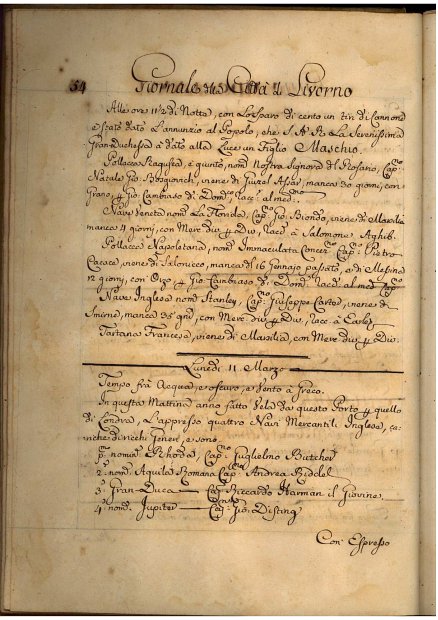 54 Giornale della Città di Livorno
Alle ore 11½ di Notte, con Lo Sparo di cento un tiri di Cannone
è stato dato L'annunzio al Popolo, che S. A. R. La Serenissima
Gran-Duchessa à dato alla Luce un Figlio Maschio.
Pollacca Ragusea, è giunto, nom.ª Nostra Signora del Rosario, Cap.no
Natale Gio: viene di manca 30 giorni, con
Grano, p Gio: Cambiaso di Dom.co, racc.ª al med.mo
Nave Veneta nom.ª La Florida, Cap.no Gio: Biondo, viene di Marsilia
manca 4 giorni, con Merc: div: p Div: racc.ª à Salomone Aghib.
Pollacca Napoletana, nom.ª Immaculata Concez.ne Cap.no Pietro
Cacace, viene di Salonicco, manca di 16 Gennajo passato, e di Messina
12 giorni, con Orzo p Gio: Cambiaso di Dom.co racc.ª al med.mo
Nave Inglese nom.ª Stanley, Cap.no Giuseppe Carted, viene di
Smirne, manca 35 gni, con Merc: div: p Div: racc.ª à Early
Tartana Francese, viene di Marsilia, con Merc: div: p Div:
Lunedi 11 Marzo
Tempo frà Acqua, e oscuro, e Vento à Greco.
In questa Mattina anno fatto Vela da questo Porto p quello
di Londra, L'appresso quattro Navi Mercantili Inglese, ca=
riche di ricchi Generi, e sono.
p.ª nom.ª Rhoda, Cap.no Guglielmo Butcher
2.ª nom.ª Aquila Romana Cap.no Andrea Riddel
3.ª Gran-Duca Cap.no Riccardo Harman il Giovine
4.ª nom.ª Jupiter Cap.no Gio: Disting
Con Espresso